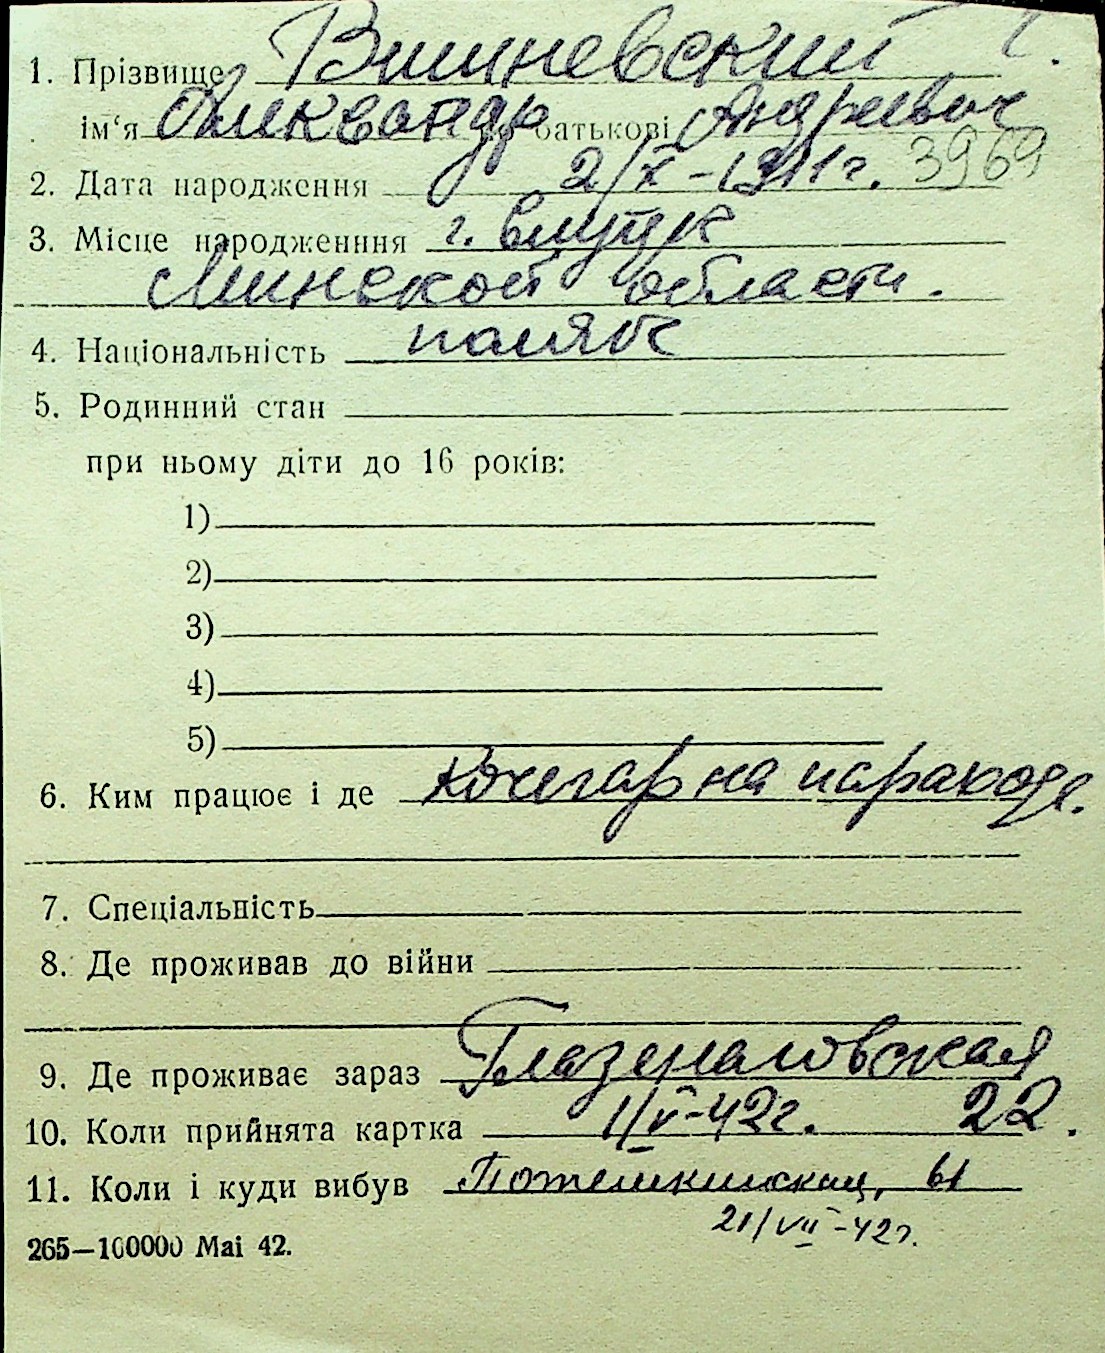 1. Прізвище Вишневский
ім'я Александр по батькові Андреевич
2. Дата народження 2/X-1911г. 3969
3. Місце народженння г. Слуцк
Минской области.
4. Національність поляк
5. Родинний стан
при ньому діти до 16 років:
1)
2)
3)
4)
5)
6. Ким працює і де Кочегар на пароходе.
7. Спеціальність
8. Де проживав до війни
9. Де проживає зараз Глазенаповская
10. Коли прийнята картка 1/V-42г. 22.
11. Коли і куди вибув Потемкинская, 61
21/VII-42г.
265—100000 Маі 42.